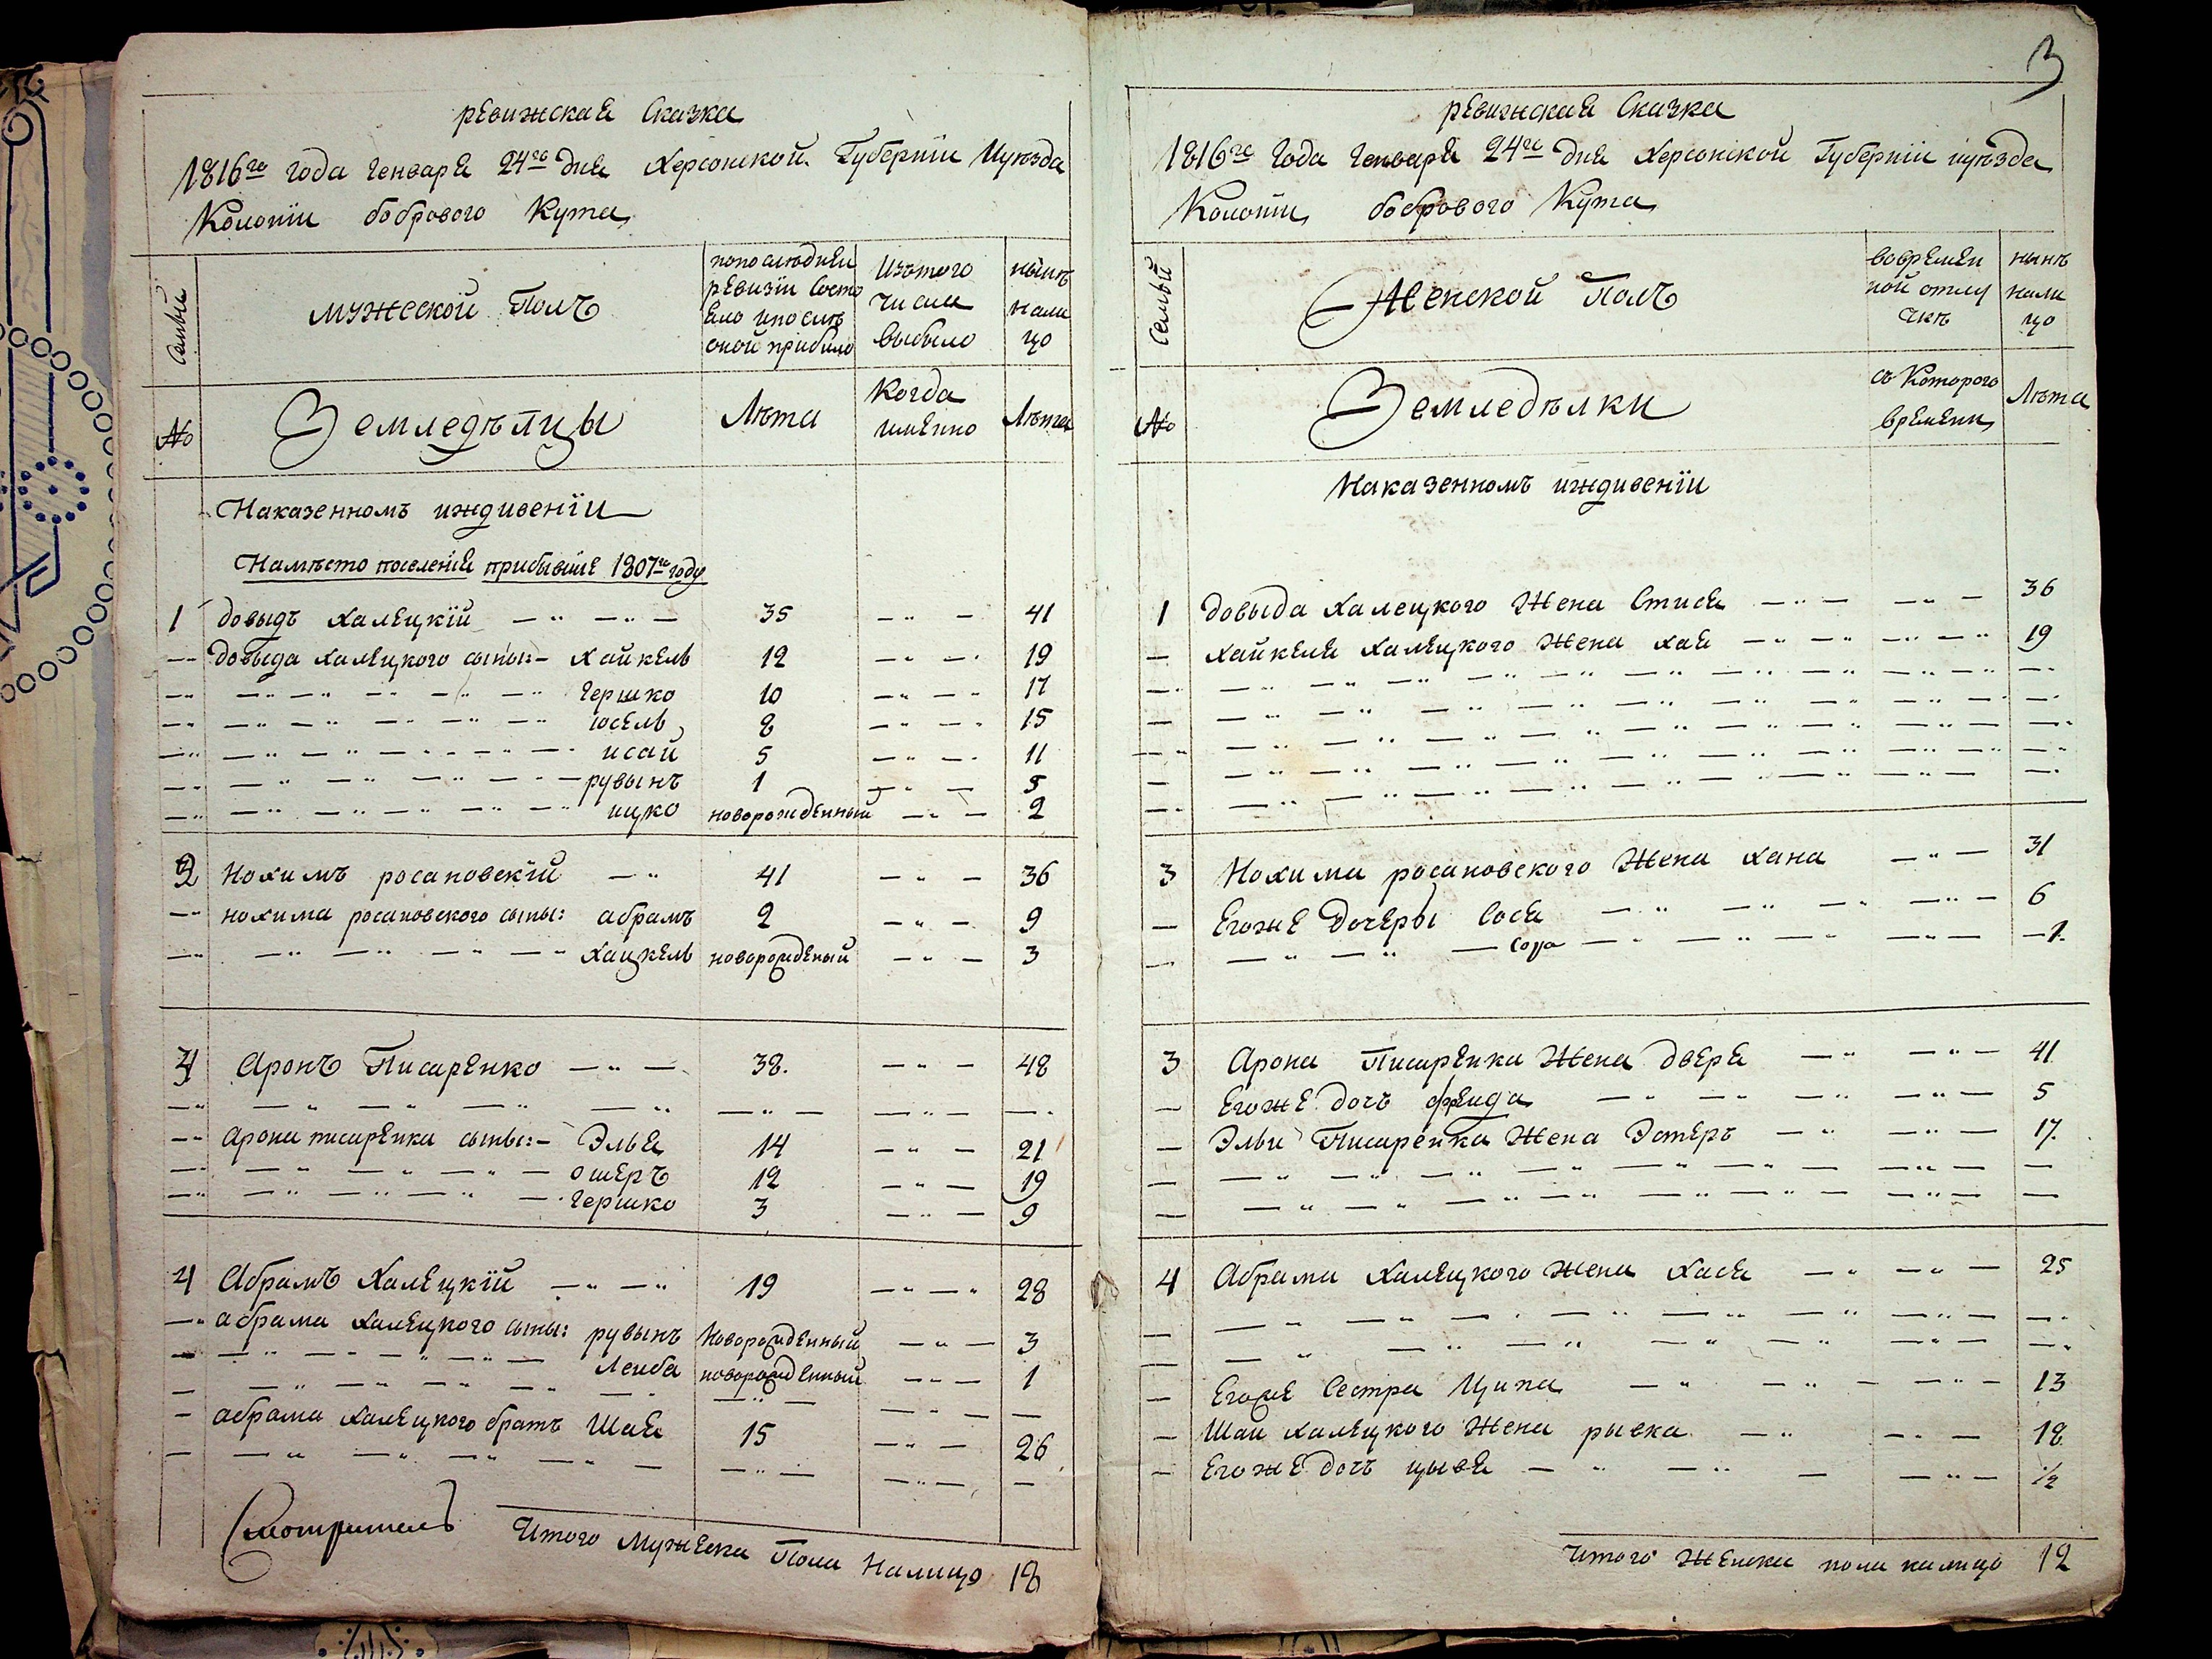 ревижская Сказка
1816го года Генваря 24го дня Херсонской Губернїи Иуѣзда
Колонїи бобрового Кута
Семьи
мужеской Полъ
попослѣдней
ревизїи Состо
яло ипослѣ
оной прибыло
Изътого
числа
выбыло
нынѣ
нали
цо
№
Земледѣлцы
Лѣта
Когда
имѣнно
Лѣта
Наказенномъ иждивенїи
Намѣсто поселенїя прибывшїе 1807го году
1 довыдъ халецкїй 35 41
довыда халецкого сыны:- Хайкель 12 19
Гершко 10 17
юсель 8 15
исай 5 11
рувынъ 1 5
ицко новорожденный 2
2 Нохимъ росановскїй 41 36
нохима росановского сыны: абрамъ 2 9
Хацкель новорожденый 3
3 Аронъ Писаренко 38. 48
арона писаренка сыны:- Элья 14 21
ошеръ 12 19
Гершко 3 9
4 Абрамъ Халецкїй 19 28
абрама халецкого сыны: рувынъ Новорожденный 3
Лейба новорожденный 1
абрама халецкого братъ Шая 15 26
Смотритель
Итого Мужеска Пола Налицо 18
3
ревижская Сказка
1816го Года Генваря 24го дня Херсонской Губернїи иуѣзда
Колонїи бобрового Кута
Семьи
Женской Полъ
вовремен
ной отлу
чкѣ
нынѣ
нали
цо
№
Земледѣлки
съ Которого
времени
Лѣта
Наказенномъ иждивенїи
1 довыда Халецкого Жена Стися 36
хайкеля халецкого Жена хая 19
3 Нохима росановского Жена хана 31
Егоже дочеры Сося 6
Сора 1.
3 Арона Писаренка Жена двера 41
Егоже дочъ фреида 5
Эльи Писаренка Жена Эстеръ 17.
4 Абрама халецкого жена хася 25
Егоже Сестра Ципа 13
Шаи халецкого Жена рывка 18
Егоже дочъ цывя 1/2
Итого Женска пола налицо 12